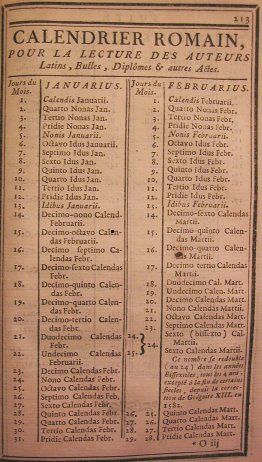 213
CALENDRIER ROMAIN,
POUR LA LECTURE DES AUTEURS
Latins, Bulles, Diplômes & autres Actes.
Jours du Mois.
JANUARIUS.
1. Calendis Januarii.
2. Quarto Nonas Jan.
3. Tertio Nonas Jan.
4. Pridie Nonas Jan.
5. Nonis Januarii.
6. Octavo Idus Jan.
7. Septimo Idus Jan.
8. Sexto Idus Jan.
9. Quinto Idus Jan.
10. Quarto Idus Jan.
11. Tertio Idus Jan.
12. Pridie Idus Jan.
13. Idibus Januarii.
14. Decimo-nono Calend.
Februarii.
15. Decimo-octavo Calendas
Februarii.
16. Decimo septimo Calendas
Febr.
17. Decimo-sexto Calendas
Febr.
18. Decimo-quinto Calendas
Febr.
19. Decimo-quarto Calendas
Febr.
20. Decimo-tertio Calendas
Febr.
21. Duodecimo Calendas
Febr.
22. Undecimo Calendas
Febr.
23. Decimo Calendas Febr.
24. Nono Calendas Febr.
25. Octavo Calendas Febr.
26. Septimo Calendas Feb.
27. Sexto Calendas Febr.
28. Quinto Calendas Febr.
29. Quarto Calendas Febr.
30. Tertio Calendas Febr.
31. Pridie Calendas Febr.
Jours du Mois.
FEBRUARIUS.
1. Calendis Februarii.
2. Quarto Nonas Febr.
3. Tertio Nonas Febr.
4. Pridie Nonas Febr.
5. Nonis Februarii.
6. Octavo Idus Febr.
7. Septimo Idus Febr.
8. Sexto Idus Febr.
9. Quinto Idus Febr.
10. Quarto Idus Febr.
11. Tertio Idus Febr.
12. Pridie Idus Febr.
13. Idibus Februarii.
14. Decimo-sexto Calendas
Martii.
15. Decimo-quinto Calen.
Martii.
16. Decimo-quarto Calen.
Martii.
17. Decimo tertio Calendas
Martii.
18. Duodecimo Cal. Mart.
19. Undecimo Calen. Mart.
20. Decimo Calendas Matt.
21. Nono Calendas Mart.
22. Octavo Calendas Mart.
23. Septimo Calendas Mart.
24. Sexto (bissexto) Cal.
Martii.
24. Sexto Calendas Martii.
Ce nombre se redouble
(au 24) dans les années
Bissextiles, tous les 4 ans,
excepté à la fin de certains
siécles, depuis la correction
de Grégoire XIII. en
1582.
26. 25. Quinto Calendas Mart.
27. 26. Quarto Calendas Mart.
28. 27. Tertio Calendas Mart.
29. 28. Pridie Calendas Mart.
O iij